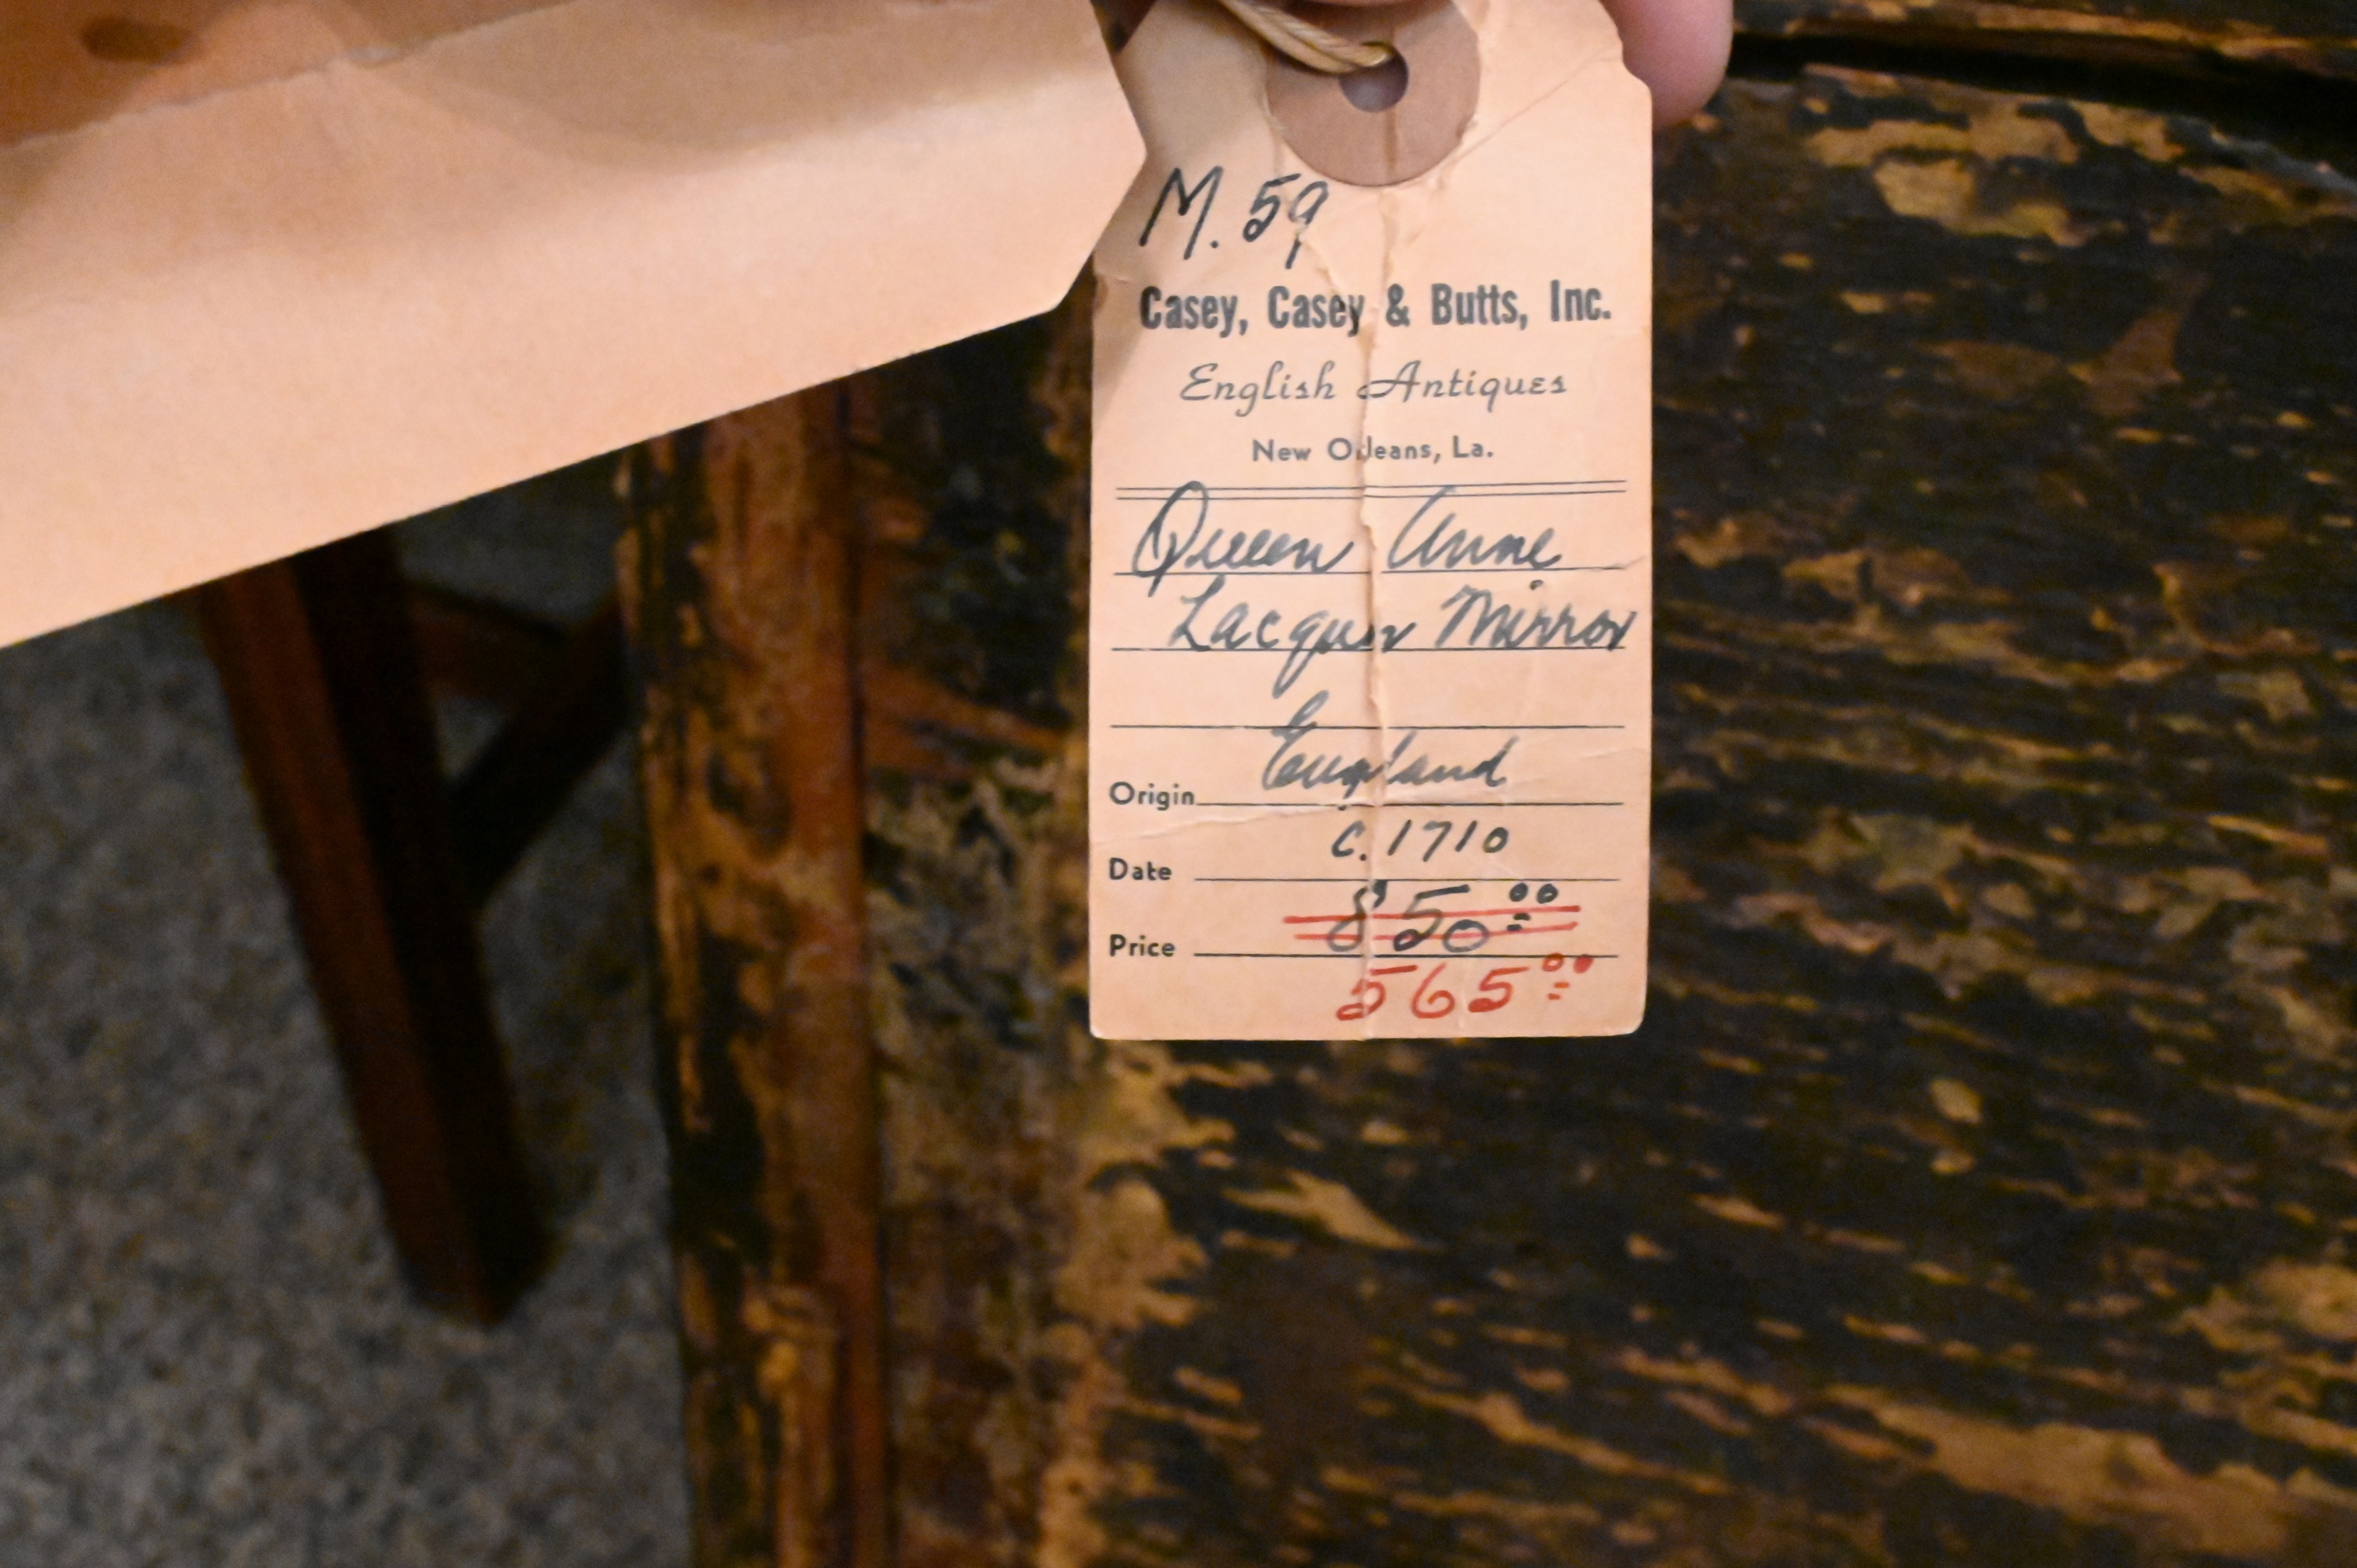 M. 59
Casey, Casey & Butts, Inc.
English Antiques
New Orleans, La.
Queen Anne
Lacquer Mirror
Origin England
Date c. 1710
Price 850.00
565.00